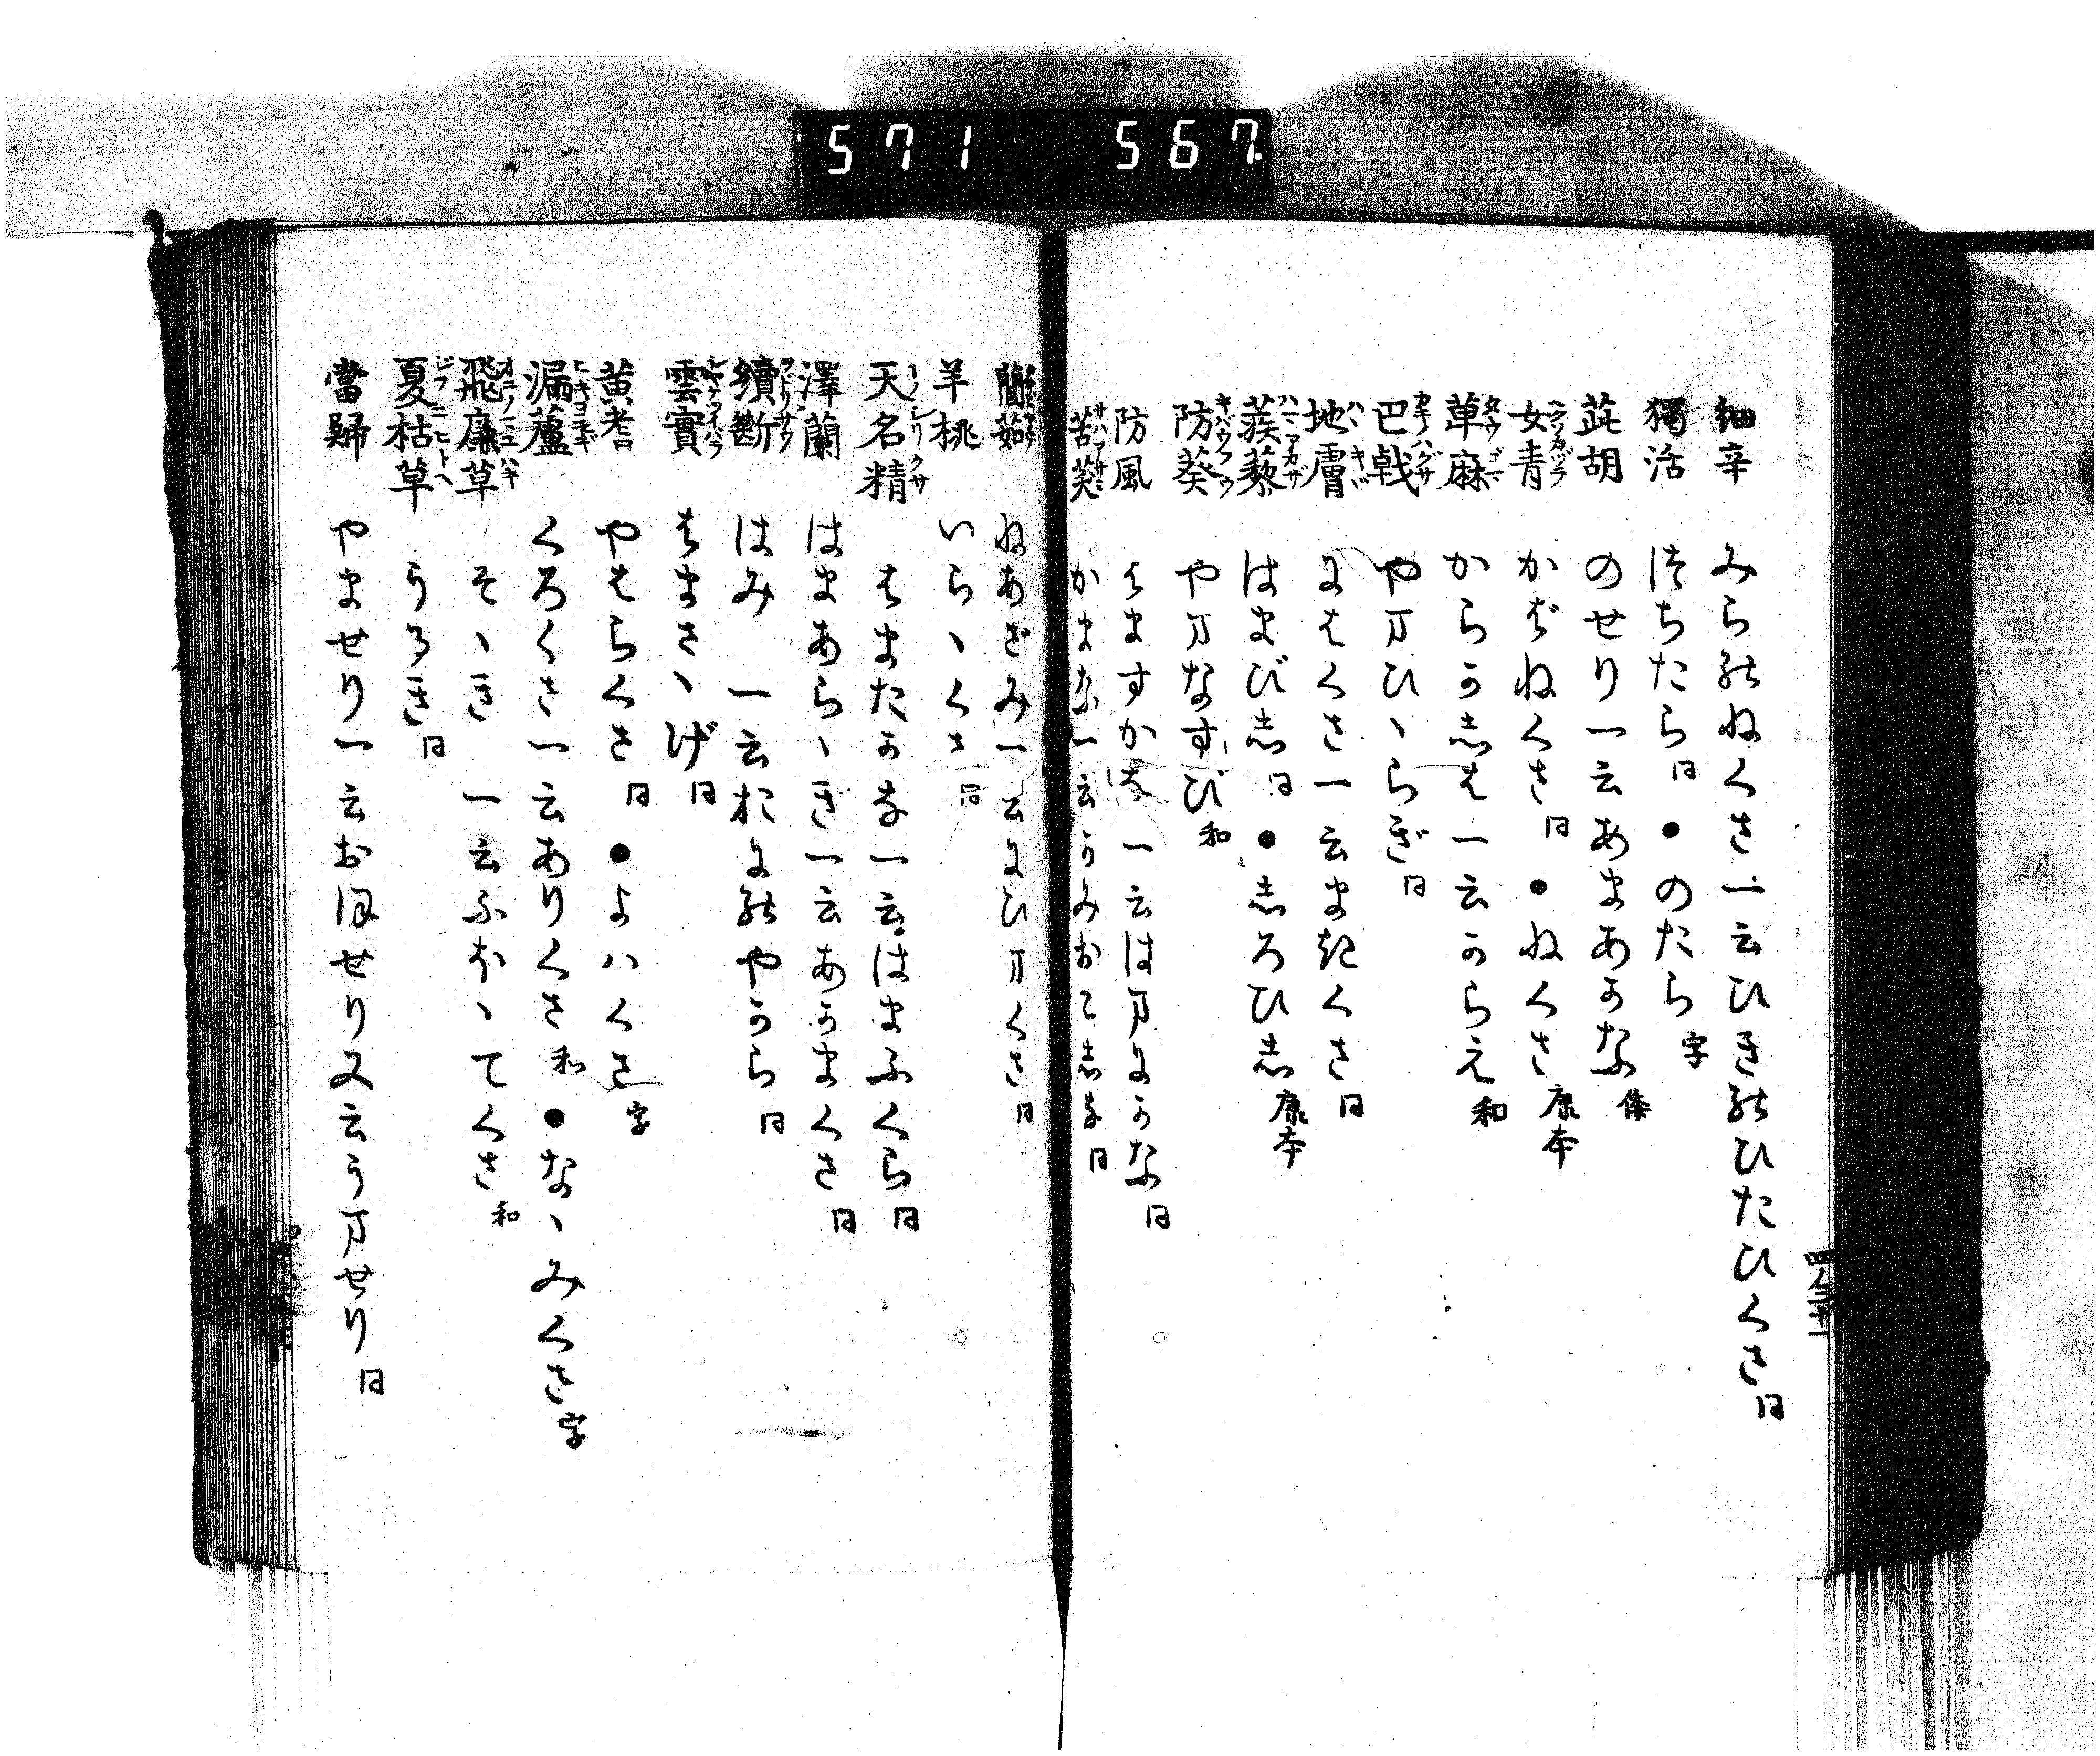 571 567
細辛 みらのねくさ一云ひきのひたひくさ同
獨活 つちたら同●のたら字
茈胡 のせり一云あまあかな倭
女青 かばねくさ同●ねくさ康本
草麻 からかしは一云からえ和
巴戟 やまひゝらぎ同
地膚 にはくさ一云まきくさ同
蒺藜 はまびし同●しろひし康本
防葵 やまなすび和
防風 はますかな一云はまにかな同
ねあざみ一云にひまくさ同
羊桃 いらゝくさ同
天名精 はまたかな一云はまふくら同
澤蘭 はまあらゝぎ一云あかまくさ同
續斷 はみ一云おにのやから同
雲實 はまさゝげ同
黄耆 やはらくさ同●よハくさ字
漏蘆 くろくさ一云ありくさ和●なゝみくさ字
飛廉草 そゝき一云ふほゝてくさ和
夏枯草 うるき同
當歸 やませり一云おほせり又云うませり同